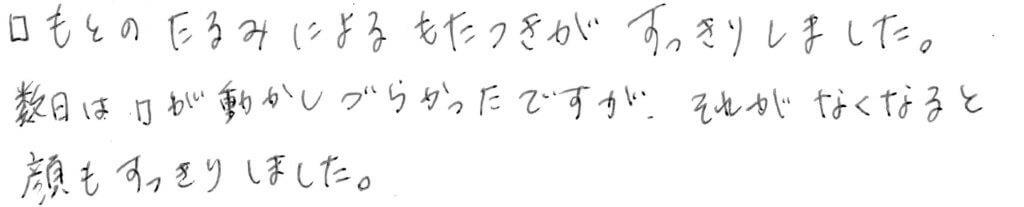 口もとのたるみによるもたつきがすっきりしました。
数日は口が動かしづらかったですが、それがなくなると
顔もすっきりしました。